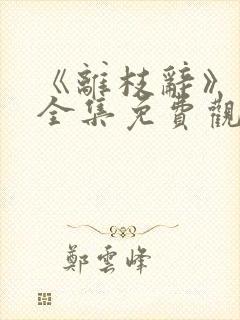 《離枝辭》
全集免費觀
鄭雲峰